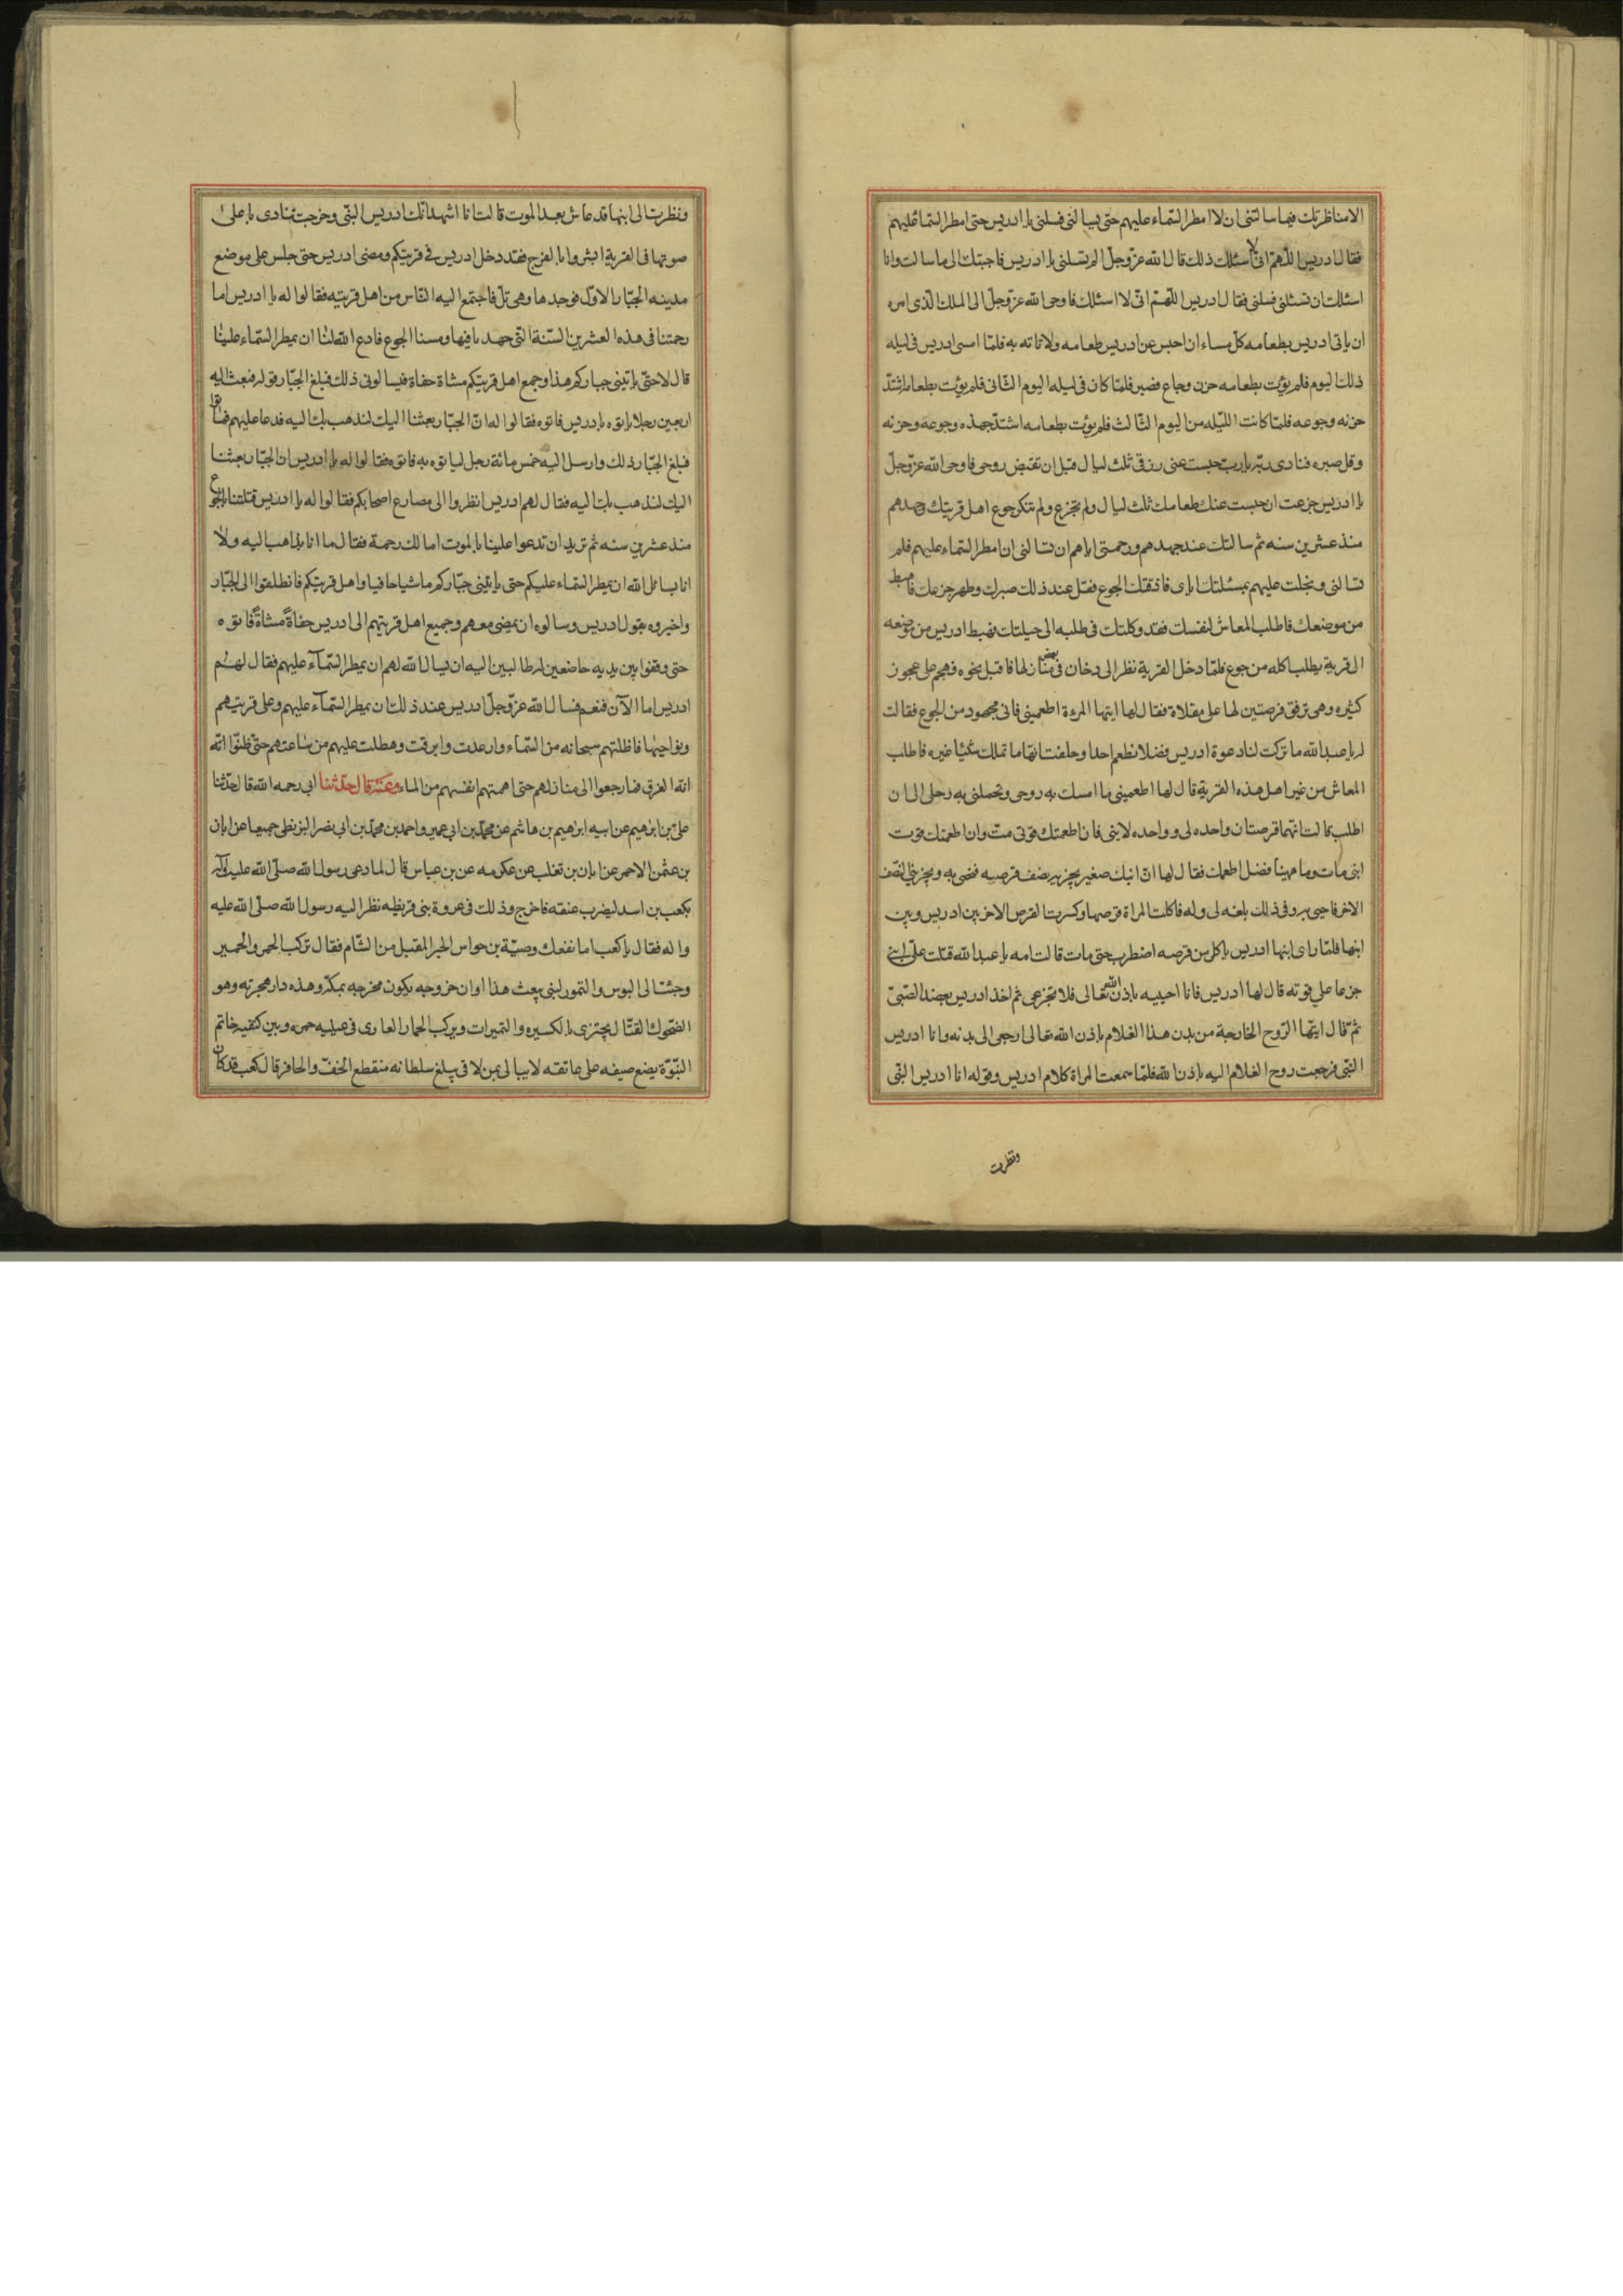 الا مناظرتك فيما سالتنی ان لا امطر السّماء عليهم حتی يسالنی فسلنی يا ادريس حتی امطر السّما عليهم
فقال ادريس اللّهمّ انّی لا اسئلك ذلك قال الله عزّ وجلّ الم تسلنی يا ادريس فاجبتك الی ما سالت وانا
اسئلك ان تسئلنی فسلنی فقال ادريس اللّهمّ انّی لا اسئلك فاوحی الله عزّ وجلّ الی الملك الّذی امره
ان ياتی ادريس بطعامه كلّ مساء ان احبس عن ادريس طعامه ولا تاته به فلمّا امسی ادريس فی ليله
ذلك اليوم فلم يؤت بطعامه حزن وجاع فصبر فلمّا كان فی ليله اليوم الثّانی فلم يؤت بطعامه اشتدّ
حزنه وجوعه فلمّا كانت اللّيله من اليوم الثّالث فلم يؤت بطعامه اشتدّ جهده وجوعه وحزنه
وقل صبره فنادی ربّه يا ربّ حبست عنی رزقی ثلث ليال قبل ان تقبض روحی فاوحی الله عزّ وجلّ
يا ادريس جزعت ان حبست عنك طعامك ثلث ليال ولم تجزع ولم تنكر جوع اهل قريتك وجهدهم
منذ عشرين سنه ثم سالتك عند جهدهم ورحمتی اياهم ان تسالنی ان امطر السّماء عليهم فلم
تسالنی وبخلت عليهم بمسئلتك ايای فاذقتك الجوع فقل عند ذلك صبرك وظهر جزعك فاهبط
من موضعك فاطلب المعاش لنفسك فقد وكلتك فی طلبه الی حيلتك فهبط ادريس من موضعه
الی قرية يطلب اكله من جوع فلمّا دخل القرية نظر الی دخان فی بعض منازلها فاقبل نحوه فهجم علی عجوز
كثيره وهی ترقق قرصتين لها علی مقلاة فقال لها ايتها المرءة اطعمينی فانی مجهود من الجوع فقالت
له يا عبد الله ما تركت لنا دعوة ادريس فضلا نطعم احدا وحلفت انها ما تملك شيئا غيره فاطلب
المعاش من غير اهل هذه القرية قال لها اطعمينی ما امسك به روحی وتحملنی به رجلی الی ان
اطلب قالت انهما قرصتان واحده لی وواحده لابنی فان اطعمتك قوتی متّ وان اطعمتك قوت
ابنی مات وما ههنا فضل اطعمك فقال لها انّ ابنك صغير يجزيه نصف قرصه فيحيی به ويجزينی النّصف
الاخر فاحيی به وفی ذلك بلغه لی وله فاكلت المراة قرصها وكسرت القرص الاخر بين ادريس وبين
ابنها فلمّا رای ابنها ادريس ياكل من قرصه اضطرب حتی مات قالت امه يا عبد الله قتلت علیّ ابنی
جزعا علی قوته قال لها ادريس فانا احييه باذن الله تعالی فلا تجزعی ثم اخذ ادريس بعضد الصّبیّ
ثمّ قال ايّتها الرّوح الخارجة من بدن هذا الغلام باذن الله تعالی ارجعی الی بدنه وانا ادريس
النّبی فرجعت روح الغلام اليه باذن الله فلمّا سمعت المراة كلام ادريس وقوله انا ادريس النّبی
ونظرت
ونظرت الی ابنها قد عاش بعد الموت قالت انا اشهد انّك ادريس النّبی وخرجت تنادی باعلی
صوتها فی القرية ابشروا بالفرج فقد دخل ادريس فی قريتكم ومضی ادريس حتی جلس علی موضع
مدينه الجبّار الاوّل فوجدها وهی تلّ فاجتمع اليه النّاس من اهل قريته فقالوا له يا ادريس اما
رحمتنا فی هذه العشرين السّنة الّتی جهدنا فيها ومسنا الجوع فادع الله لنا ان يمطر السّماء علينا
قال لا حتّی ياتينی جباركم هذا وجمع اهل قريتكم مشاة حفاة فيسالونی ذلك فبلغ الجبّار قوله فبعث اليه
اربعين رجلا ياتوه بادريس فاتوه فقالوا له انّ الجبّار بعثنا اليك لنذهب بك اليه فدعا عليهم فماتوا
فبلغ الجبّار ذلك وارسل اليه خمس مائة رجل لياتوه به فاتوه فقالوا له يا ادريس ان الجبّار بعثنا
اليك لنذهب بك اليه فقال لهم ادريس انظروا الی مصارع اصحابكم فقالوا له يا ادريس قتلتنا بالجوع
منذ عشرين سنه ثم تريد ان تدعوا علينا بالموت اما لك رحمة فقال ما انا بذاهب اليه ولا
انا بسائل الله ان يمطر السّماء عليكم حتی ياتينی جبّاركم ماشيا حافيا واهل قريتكم فانطلقوا الی الجبّار
واخبروه بقول ادريس وسالوه ان يمضی معهم وجميع اهل قريتهم الی ادريس حفاةً مشاةً فاتوه
حتی وقفوا بين يديه خاضعين له طالبين اليه ان يسال الله لهم ان يمطر السّمآء عليهم فقال لهم
ادريس اما الآن فنعم فسال الله عزّ وجلّ ادريس عند ذلك ان يمطر السّمآء عليهم وعلی قريتهم
ونواحيها فاظلتهم سحابه من السّماء وارعدت وابرقت وهطلت عليهم من ساعتهم حتّی ظنّوا انّه
انّه الغرق فما رجعوا الی منازلهم حتی اهمتهم انفسهم من الماء وعنه قال حدّثنا ابی رحمه الله قال حدّثنا
علیّ بن ابرهيم عن ابيه ابرهيم بن هاشم عن محمّد بن ابی عمير واحمد بن محمّد بن ابی نصر البزنطی جميعا عن ابان
بن عثمن الاحمر عن ابان بن تغلب عن عكرمه عن بن عباس قال لما دعی رسول الله صلّی الله عليه وآله
بكعب بن اسد ليضرب عنقه فاخرج وذلك فی غروة بنی قريظه نظر اليه رسول الله صلّی الله عليه
واله فقال يا كعب اما نفعك وصيّة بن حواس الحبر المقبل من الشّام فقال تركت الخمر والخمير
وجئت الی البوس والتمور لنبی يبعث هذا اوان خروجه يكون مخرجه بمكّه وهذه دار هجرته وهو
الضّحوك القتّال يجتزی بالكسيره والتميرات ويركب الحمار العاری فی عينيه حمره وبين كتفيه خاتم
النّبوّة يضع صيفه علی عاتقه لا يبالی بمن لاقی يبلغ سلطانه منقطع الخفّ والحافر قال كعب قد كان